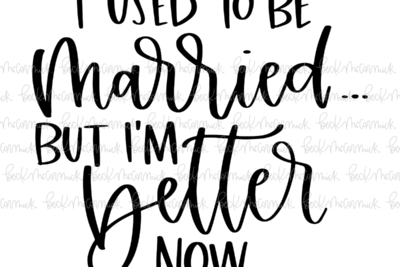 I USED TO BE
married...
BUT I'M
better
NOW